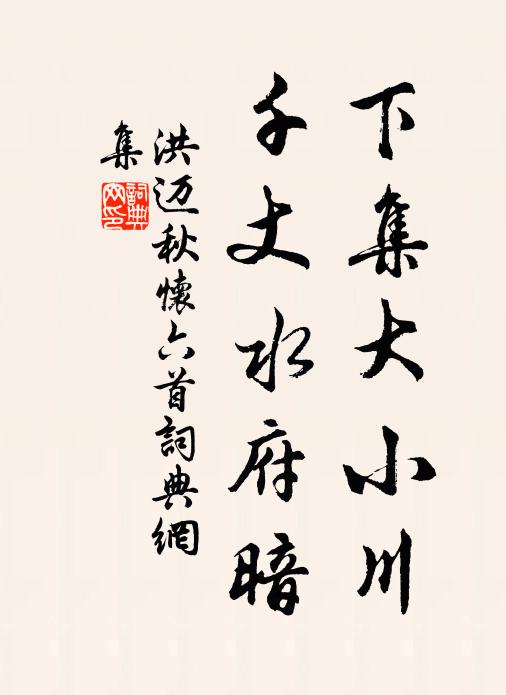 下集大小川
千丈水府暗
洪迈秋懷六首詞典網
集
詞典网印